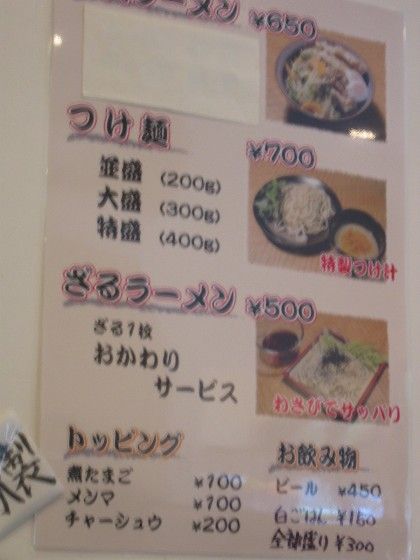 ラーメン ¥650
つけ麺 ¥700
並盛 (200g)
大盛 (300g)
特盛 (400g)
特製つけ汁
ざるラーメン ¥500
ざる1枚
おかわり
サービス
わさびでサッパリ
トッピング
煮たまご ¥100
メンマ ¥100
チャーシュウ ¥200
お飲み物
ビール ¥450
白ごはん ¥150
全部盛り ¥300
製